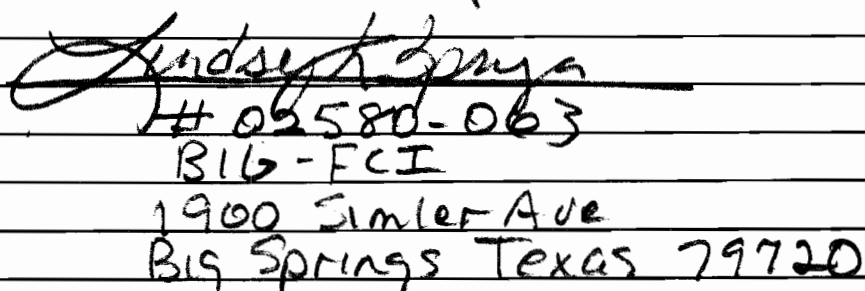 Lindsey K
# 02580-063
BIG-FCI
1900 Simler Ave
Big Springs Texas 79720